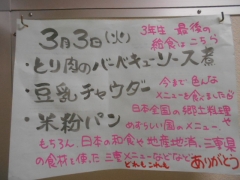 3月3日(火)
3年生 最後の
給食はこちら
・とり肉のバーベキューソース煮
・豆乳チャウダー
・米粉パン
今まで色んな
メニューを食べましたが
日本全国の郷土料理
めずらしい国のメニューや
もちろん、日本の和食や地産地消、三重県
の食材を使った三重メニューなどなど
どれもこれも
ありがとう